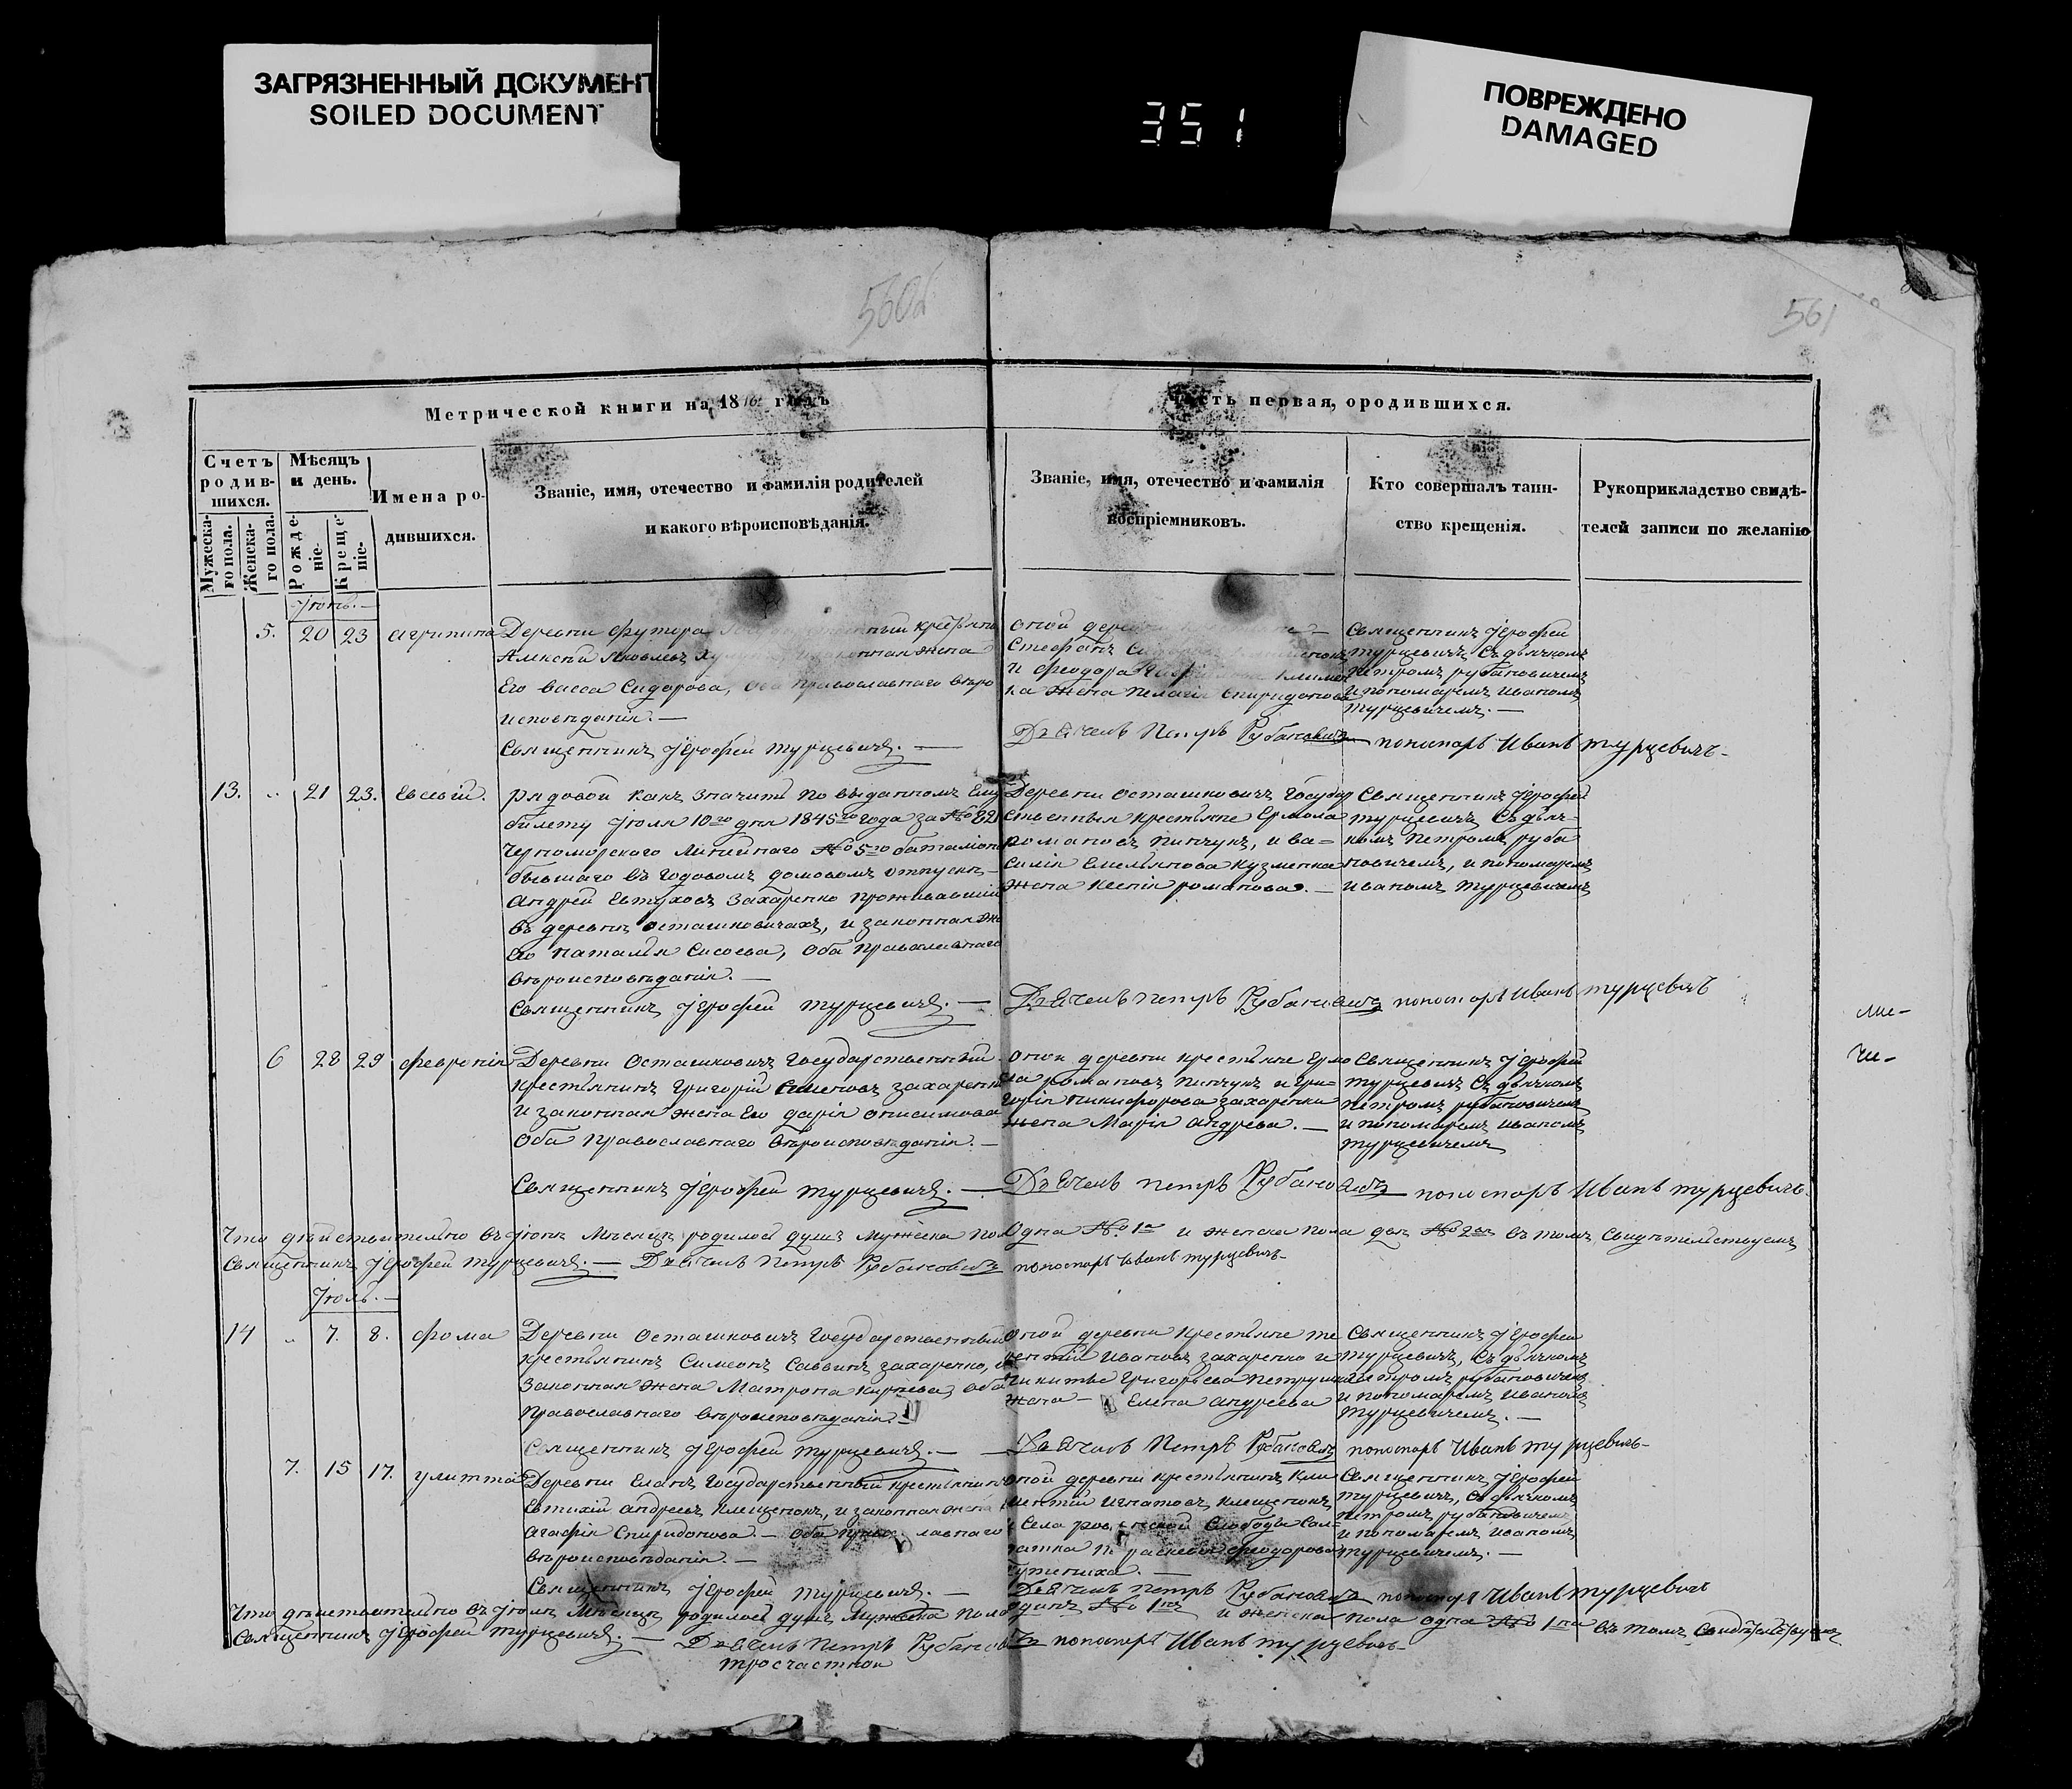 ЗАГРЯЗНЕННЫЙ ДОКУМЕНТ
SOILED DOCUMENT
351
ПОВРЕЖДЕНО
DAMAGED
560об
561
Метрической книги на 1846 годъ
Часть первая, ородившихся.
Счетъ родив-шихся.
Мужеска-го пола.
Женска-го пола.
Мѣсяцъ и день.
Рожде-ніе.
Креще-ніе.
Имена ро-дившихся.
Званіе, имя, отечество и фамилія родителей
и какого вѣроисповѣданія.
Званіе, имя, отечество и фамилія
воспріемниковъ.
Кто совершалъ таин-
ство крещенія.
Рукоприкладство свидѣ-
телей записи по желанію
Іюнь.
5. 20 23 Агрипина
Деревни Футора крестьянинъ
Алексѣй Яковлевъ законная жена
Его Васса Сидорова, оба православнаго вѣро
исповѣданія. —
Священникъ Іерофей Турцевичъ. —
оной деревни
Стефанъ
и Феодора
ка жена Пелагія Спиридонова
Священникъ Іерофей
Турцевичъ, съ дьячкомъ
Петромъ Рубановичемъ
и пономаремъ Иваномъ
Турцевичемъ. —
Дьячекъ Петръ Рубановичъ пономарь Иванъ Турцевичъ
13. „ 21 23. Евсевій.
Рядовой какъ значитъ по выданномъ Ему
билету Іюля 10го дня 1845го года за № 821
Черноморскаго Линейнаго № 5го баталіона
бывшаго въ годовомъ домовомъ отпуску
Андрей Евтуховъ Захаренко проживавшій
въ деревнѣ Осташковичахъ, и законная же
Его Наталья Сисоева, оба православнаго
вѣроисповѣданія. —
Священникъ Іерофей Турцевичъ. —
Деревни Осташковичъ Государ
ственныя крестьяне Ермола
Романовъ Пинчукъ, и Ва-
силія Емельянова Кузменка
жена Ксенія Романова. —
Священникъ Іерофей
Турцевичъ съ дьяч-
комъ Петромъ Руба
новичемъ, и пономаремъ
Иваномъ Турцевичемъ
Дьячекъ Петръ Рубановичъ пономарь Иванъ Турцевичъ
6 28 29 Февронія
Деревни Осташковичъ Государственный
крестьянинъ Григорій Семеновъ Захаренко
и законная жена Его Дарія Онисимова
оба православнаго вѣроисповѣданія. —
Священникъ Іерофей Турцевичъ. —
оной деревни крестьяне Ермо
ла Романовъ Пинчукъ и Гри-
горія Никифорова Захаренки
жена Марія Андреева. —
Священникъ Іерофей
Турцевичъ съ дьячкомъ
Петромъ Рубановичемъ
и пономаремъ Иваномъ
Турцевичемъ
Дьячекъ Петръ Рубановичъ пономарь Иванъ Турцевичъ.
Что дѣйствительно въ Іюнѣ мѣсяцѣ родилось душъ мужеска пол одна № 1 и женска пола двѣ № 2 въ томъ свидѣтельствуемъ
Священникъ Іерофей Турцевичъ. — Дьячекъ Петръ Рубановичъ пономарь Иванъ Турцевичъ
Іюль. —
14 „ 7. 8. Фома
Деревни Осташковичъ Государственный
крестьянинъ Симеонъ Саввинъ Захаренко, и
законная жена Матрона Карпѣева, оба
православнаго вѣроисповѣданія. —
Священникъ Іерофей Турцевичъ. —
оной деревни крестьяне Те
рентій Ивановъ Захаренко и
Никиты Григорьева
жена — Елена Андреева
Священникъ Іерофей
Турцевичъ, съ дьячкомъ
Петромъ Рубановичемъ
и пономаремъ Иваномъ
Турцевичемъ. —
Дьячекъ Петръ Рубановичъ пономарь Иванъ Турцевичъ
7. 15 17. Улитта
Деревни Еланъ Государственный крестьянинъ
Евтихій Андреевъ Клещенокъ, и законная жена
Агафія Спиридонова. — оба православнаго
вѣроисповѣданія. —
Священникъ Іерофей Турцевичъ. —
оной деревни крестьянинъ Кли
ментій Игнатовъ Клещенокъ
и Села Слободы Сол-
датка Параскевія Феодорова
Священникъ Іерофей
Турцевичъ, съ дьячкомъ
Петромъ Рубановичемъ
и пономаремъ Иваномъ
Турцевичемъ. —
Дьячекъ Петръ Рубановичъ пономарь Иванъ Турцевичъ
Что дѣйствительно въ Іюлѣ мѣсяцѣ родилось душъ мужеска пола одинъ № 1 и женска пола одна № 1 въ томъ свидѣтельствуемъ
Священникъ Іерофей Турцевичъ. — Дьячекъ Петръ Рубановичъ пономарь Иванъ Турцевичъ
ли-
чи-